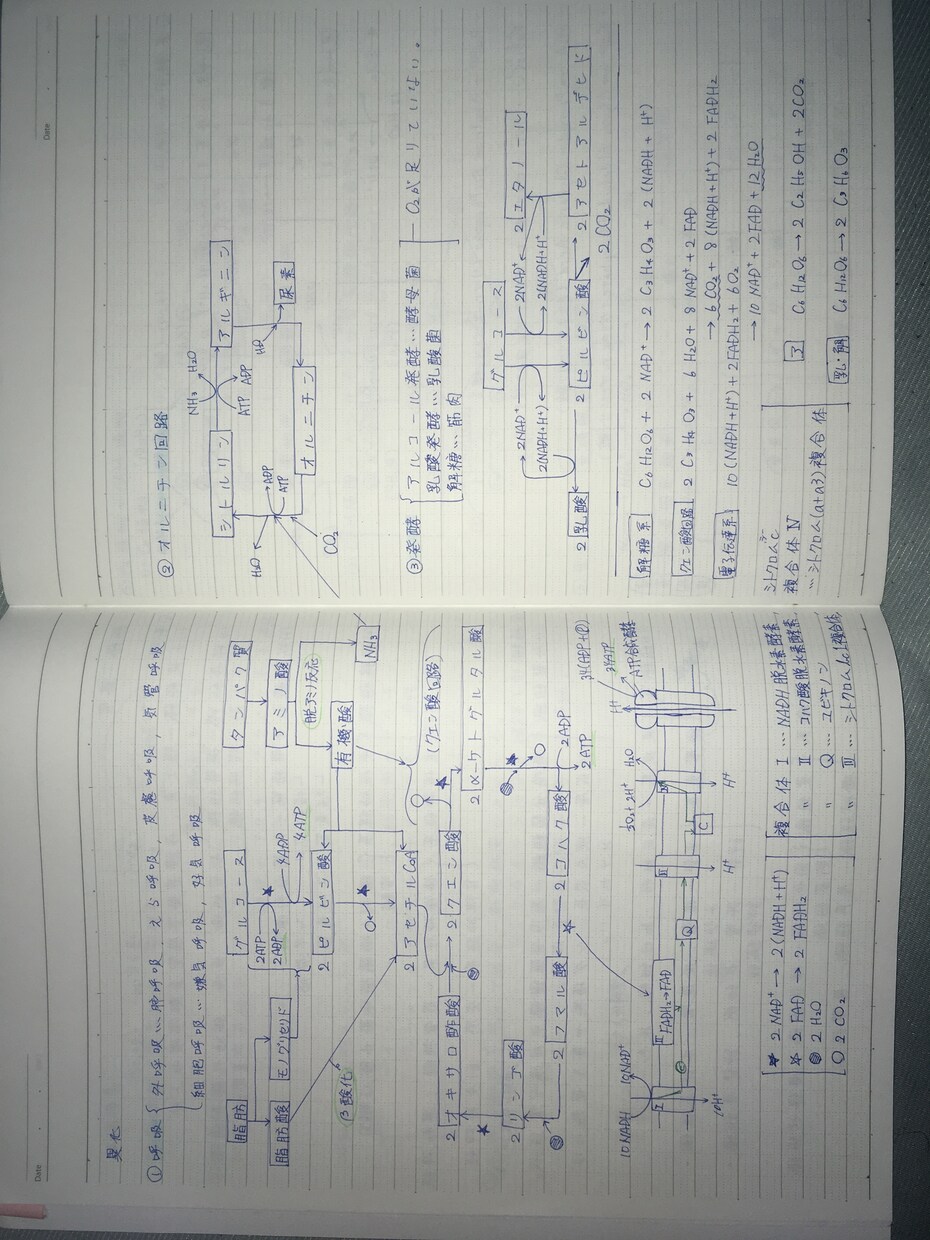 Date
異化
①呼吸 外呼吸…肺呼吸, えら呼吸, 皮膚呼吸, 気管呼吸
細胞呼吸…嫌気呼吸, 好気呼吸
脂肪
グルコース
タンパク質
2ATP
2ADP
4ADP
4ATP
アミノ酸
脱アミノ反応
脂肪酸
モノグリセリド
2 ピルビン酸
有機酸
NH₃
β酸化
2 アセチルCoA
(クエン酸回路)
2 オキサロ酢酸
2 クエン酸
2 α-ケトグルタル酸
2 リンゴ酸
2 フマル酸
2 コハク酸
2ADP
2ATP
10NADH
10NAD⁺
I
II FADH₂→FAD
Q
III
C
IV
½O₂+2H⁺
H₂O
H⁺
34(ADP+Ⓟ)
34ATP
ATP合成酵素
10H⁺
H⁺
H⁺
★ 2 NAD⁺ → 2(NADH+H⁺)
☆ 2 FAD → 2 FADH₂
2 H₂O
○ 2 CO₂
複合体 I … NADH脱水素酵素
〃 II … コハク酸脱水素酵素
〃 Q … ユビキノン
〃 III … シトクロムbc1複合体
Date
②オルニチン回路
シトルリン
アルギニン
NH₃
H₂O
ATP
ADP
H₂O
ADP
ATP
CO₂
オルニチン
H₂O
尿素
③発酵 アルコール発酵…酵母菌
乳酸発酵…乳酸菌
解糖…筋肉
O₂が足りていない。
グルコース
2NAD⁺
2(NADH+H⁺)
2NAD⁺
2(NADH+H⁺)
2 エタノール
2 乳酸
2 ピルビン酸
2 アセトアルデヒド
2 CO₂
解糖系 C₆H₁₂O₆ + 2 NAD⁺ → 2 C₃H₄O₃ + 2 (NADH + H⁺)
クエン酸回路 2 C₃H₄O₃ + 6 H₂O + 8 NAD⁺ + 2 FAD
→ 6 CO₂ + 8 (NADH+H⁺) + 2 FADH₂
電子伝達系 10 (NADH+H⁺) + 2FADH₂ + 6O₂
→ 10 NAD⁺ + 2FAD + 12H₂O
シトクロムc
複合体 IV
…シトクロム(a+a3)複合体
ア C₆H₁₂O₆ → 2 C₂H₅OH + 2CO₂
乳・解 C₆H₁₂O₆ → 2 C₃H₆O₃